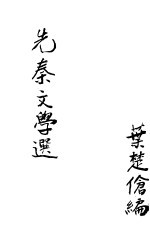 先秦文學選
葉楚傖編